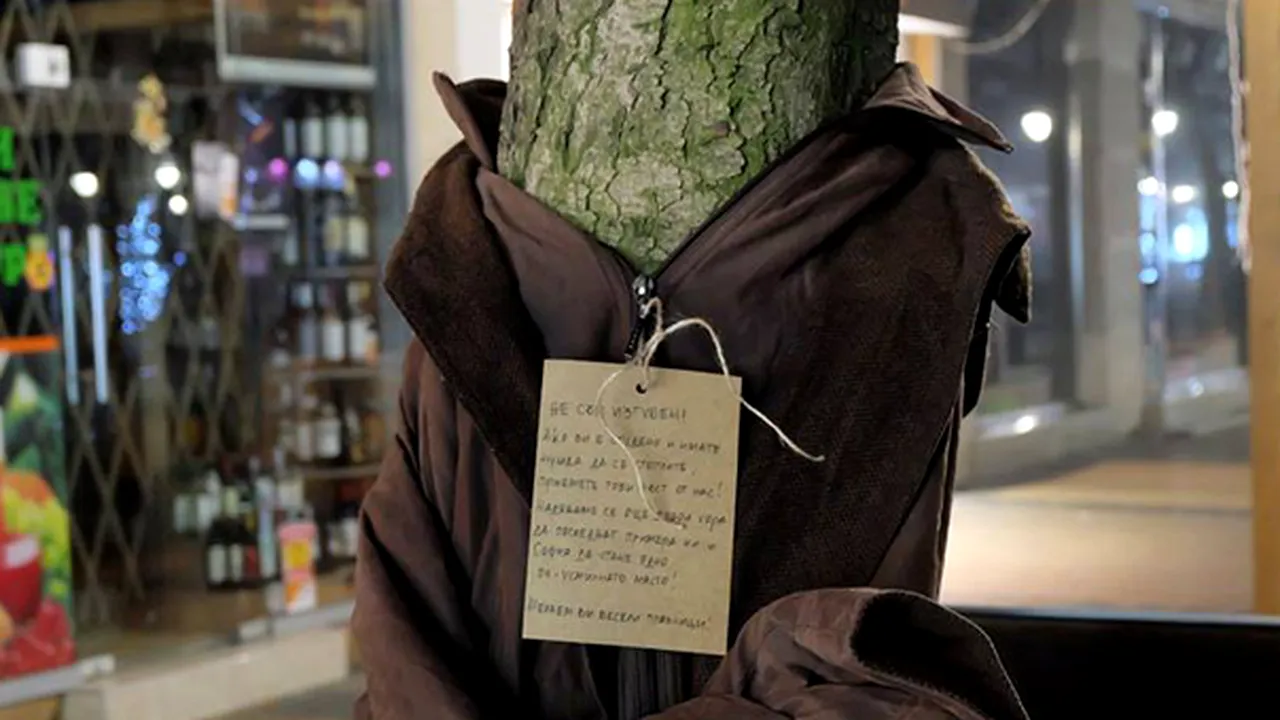 НЕ СЪМ ИЗГУБЕН!
АКО ВИ Е СТУДЕНО И ИМАТЕ
НУЖДА ДА СЕ СТОПЛИТЕ,
ПРИЕМЕТЕ ТОЗИ ЖЕСТ ОТ НАС!
НАДЯВАМЕ СЕ ОЩЕ ХОРА
ДА ПОСЛЕДВАТ ПРИМЕРА НИ И
СОФИЯ ДА СТАНЕ ЕДНО
ПО-УСМИХНАТО МЯСТО!
ЖЕЛАЕМ ВИ ВЕСЕЛИ ПРАЗНИЦИ!